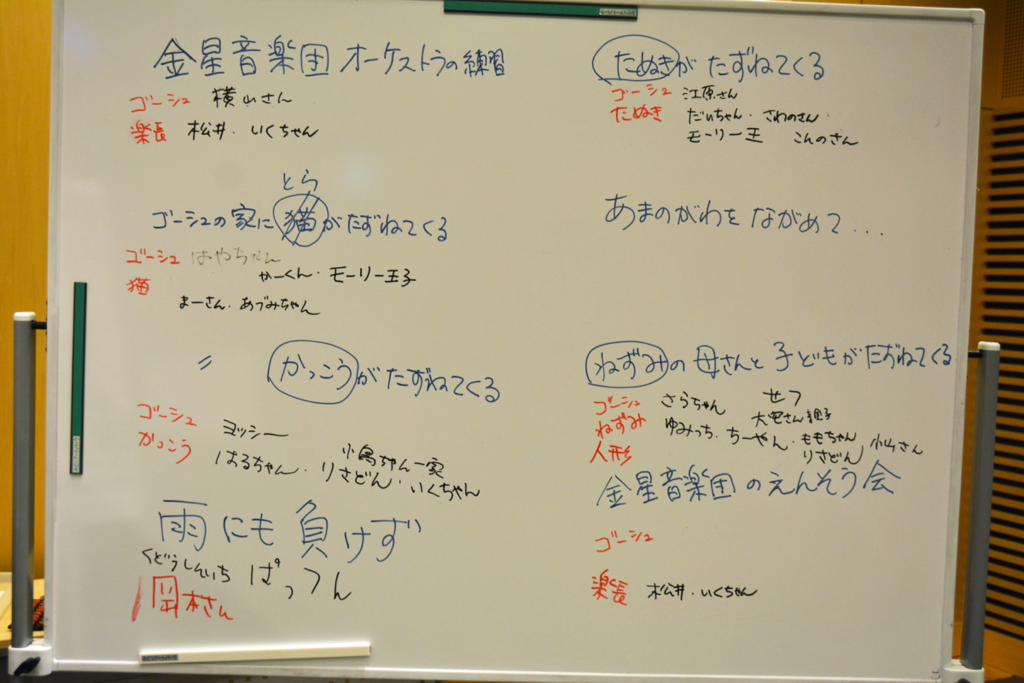 金星音楽団 オーケストラの練習
ゴーシュ 横山さん
楽長 松井・いくちゃん
とら
ゴーシュの家に猫がたずねてくる
ゴーシュ はやちゃん
かーくん・モーリー王子
猫
まーさん・あづみちゃん
〃 かっこうがたずねてくる
ゴーシュ ヨッシー
かっこう 小鳥ちゃん一家
はるちゃん・りさどん・いくちゃん
雨にも負けず
くどうしんいち ぱっつん
岡本さん
たぬきがたずねてくる
ゴーシュ 江原さん
たぬき だいちゃん・さわのさん・
モーリー王 こんのさん
あまのがわをながめて...
ねずみの母さんと子どもがたずねてくる
ゴーシュ さらちゃん セフ
ねずみ ゆみっち・ちーやん・ももちゃん
人形 りさどん 小山さん
金星音楽団のえんそう会
ゴーシュ
楽長 松井・いくちゃん